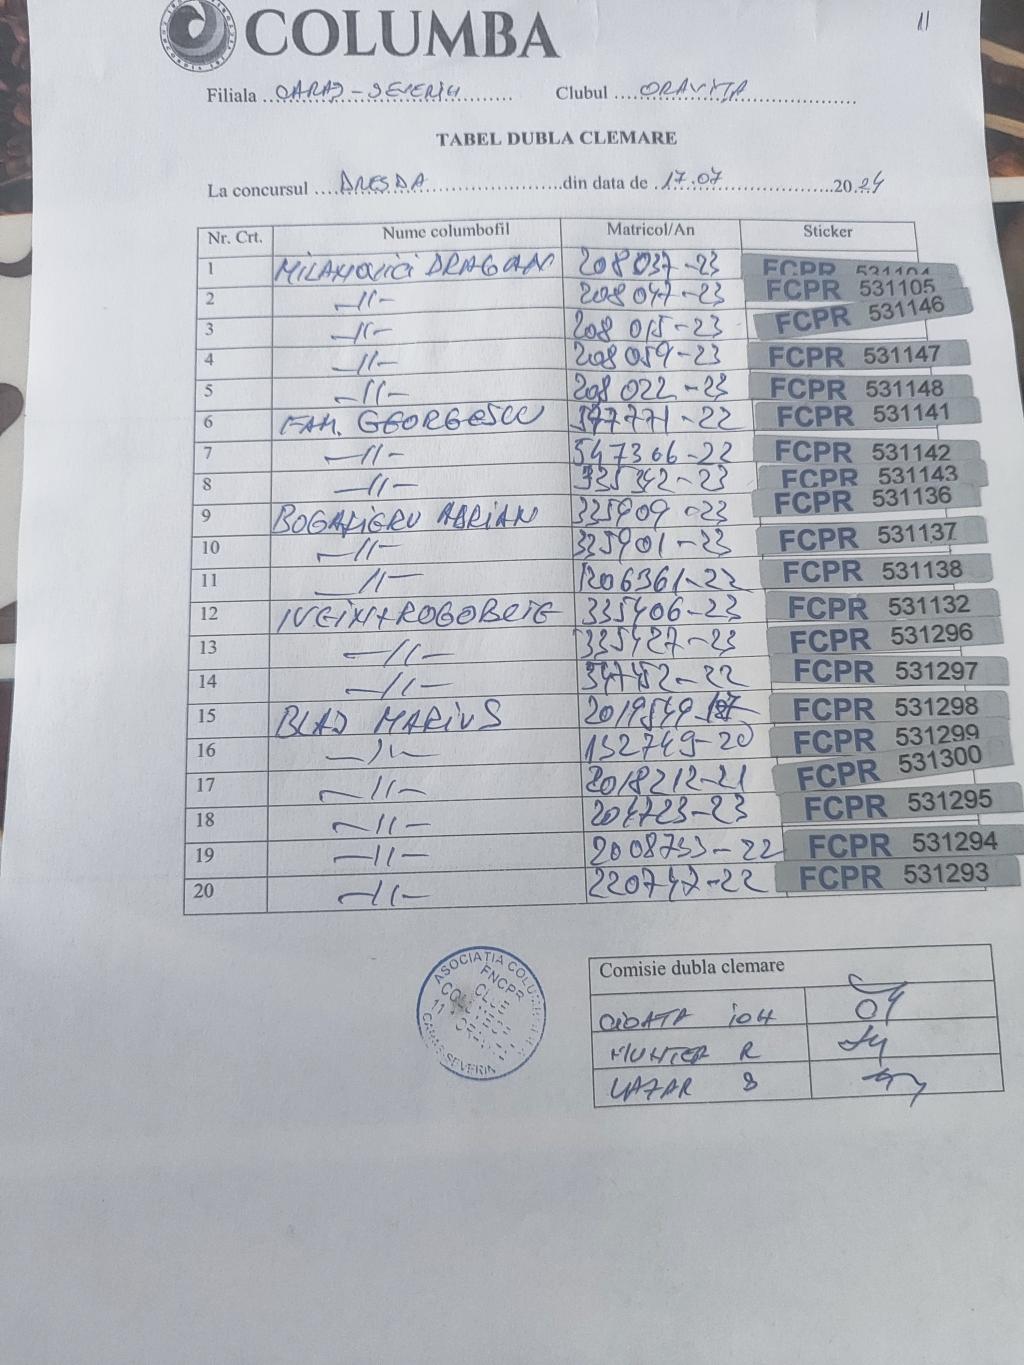 COLUMBA
11
Filiala ... CARAȘ-SEVERIN ... Clubul ... ORAVIȚA ...
TABEL DUBLA CLEMARE
La concursul ... DRESDA ... din data de . 17.07 ... 20.24
Nr. Crt. Nume columbofil Matricol/An Sticker
1 MILANOVICI DRAGAN 208037-23 FCPR 531104
2 -//- 208047-23 FCPR 531105
3 -//- 208015-23 FCPR 531146
4 -//- 208059-23 FCPR 531147
5 -//- 208022-23 FCPR 531148
6 FAM. GEORGESCU 347771-22 FCPR 531141
7 -//- 547366-22 FCPR 531142
8 -//- 335342-23 FCPR 531143
9 ADRIAN 335909-23 FCPR 531136
10 -//- 335901-23 FCPR 531137
11 -//- 1206361-22 FCPR 531138
12 335406-23 FCPR 531132
13 -//- 335427-23 FCPR 531296
14 -//- 347452-22 FCPR 531297
15 BLAJ MARIUS 2019549 FCPR 531298
16 -//- 132749-20 FCPR 531299
17 -//- 2018212-21 FCPR 531300
18 -//- 204723-23 FCPR 531295
19 -//- 2008733-22 FCPR 531294
20 -//- 220747-22 FCPR 531293
ASOCIATIA
FNCPR
SEVERIN
Comisie dubla clemare
CIDATA ION
MUNTEA R
LAZAR S